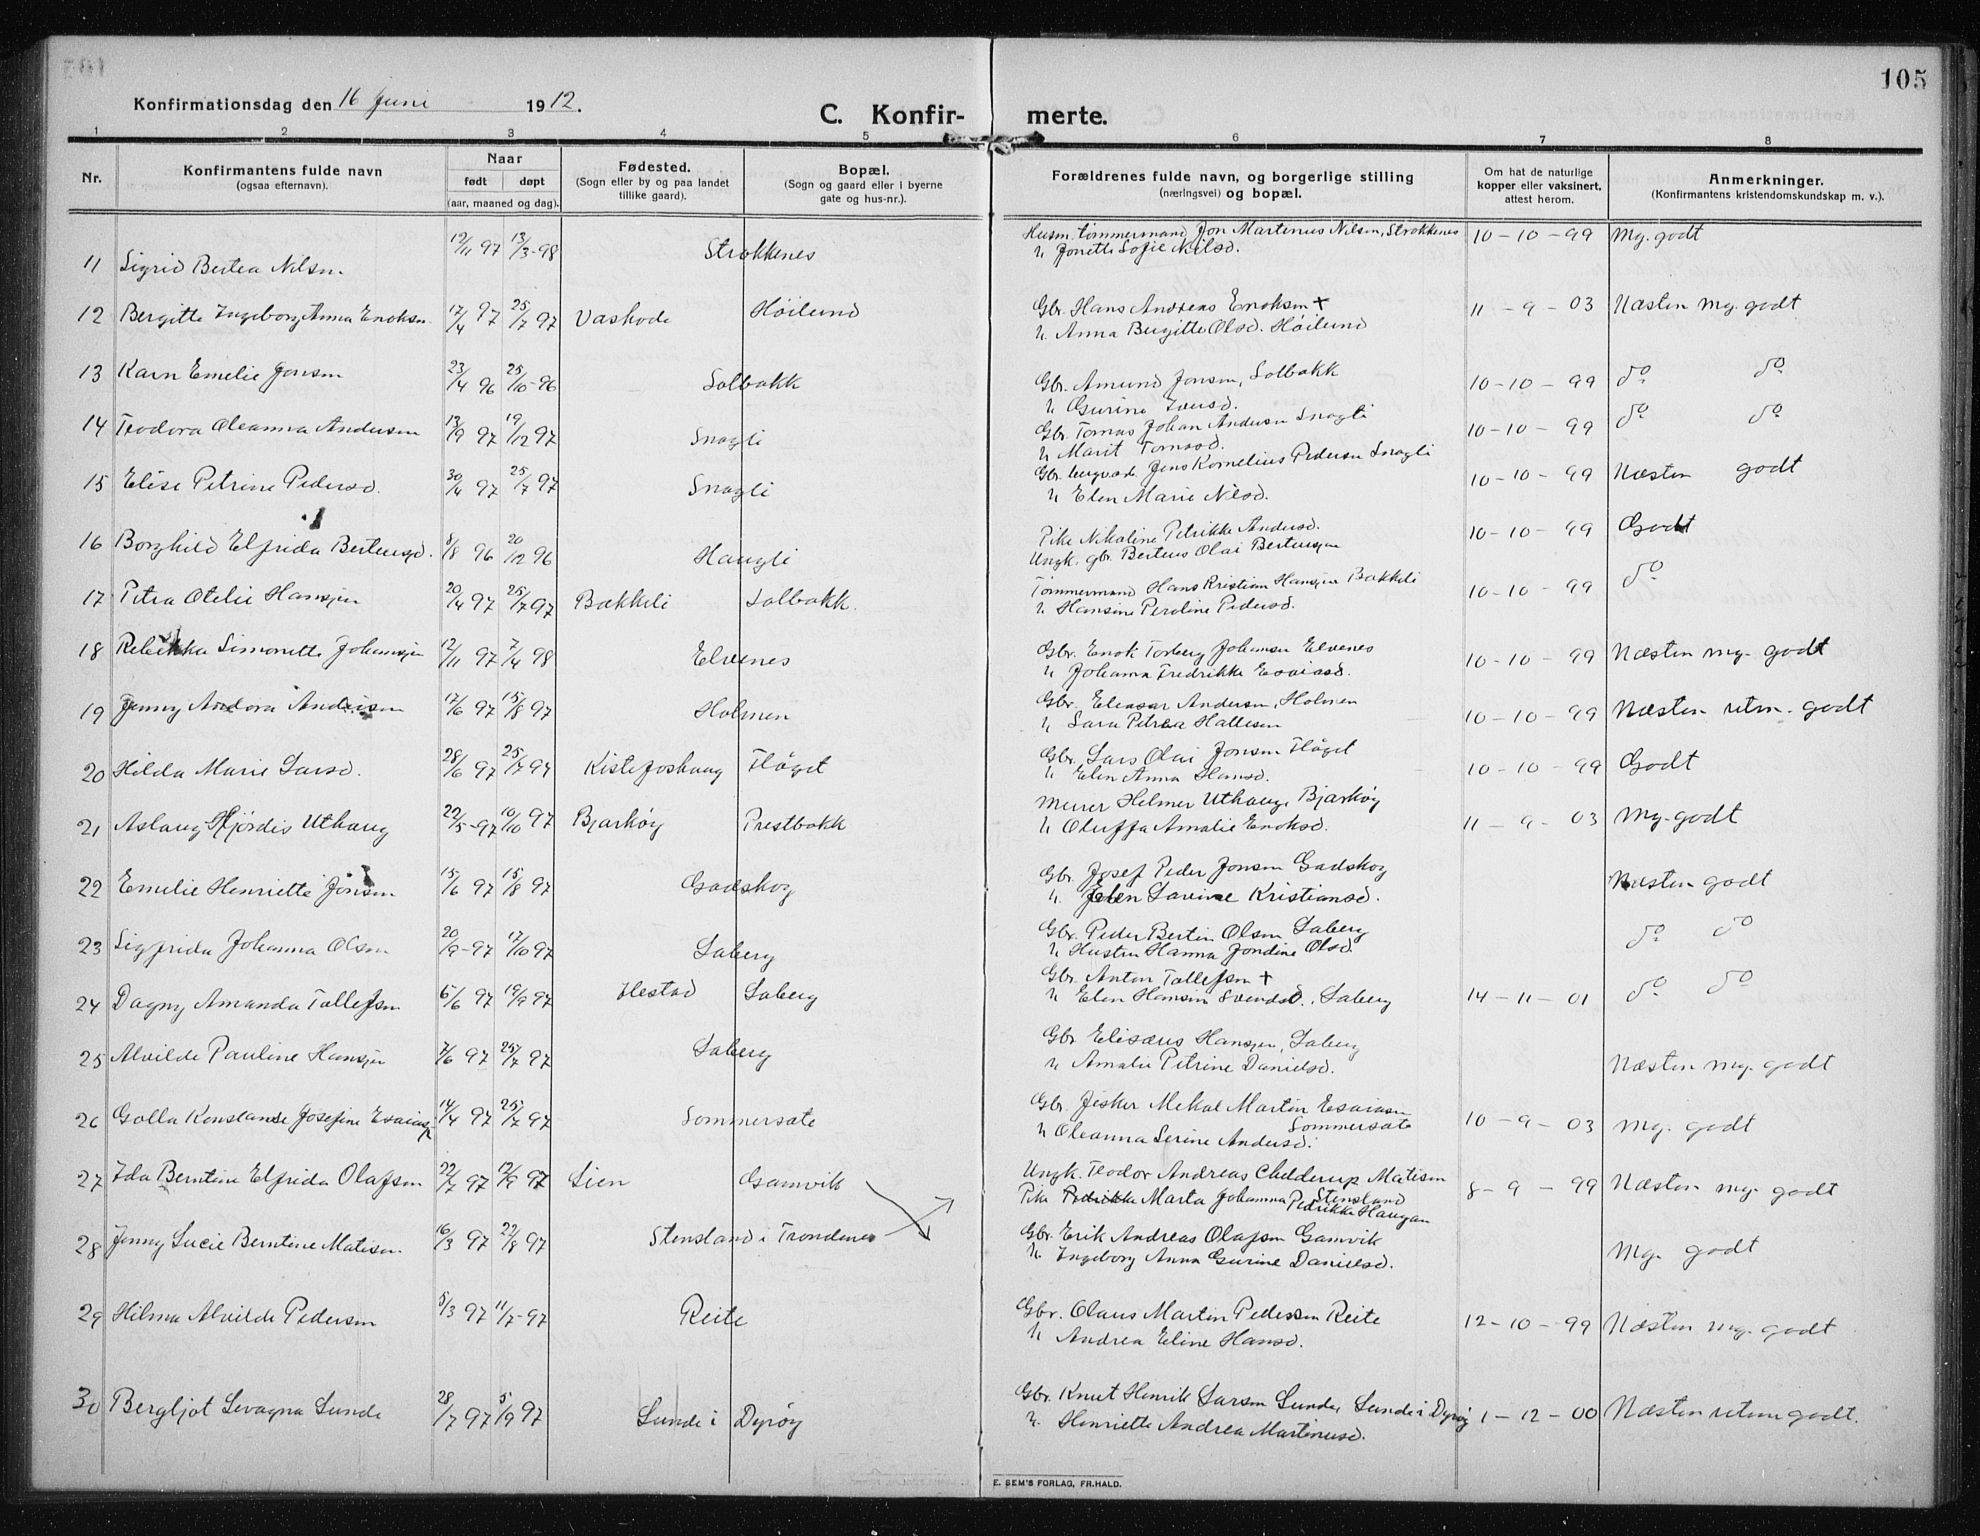 105
Konfirmationsdag den 16 Juni 1912.
C. Konfir- merte.
1 2 3 4 5 6 7 8
Nr. Konfirmantens fulde navn (ogsaa efternavn). Naar født døpt (aar, maaned og dag). Fødested. (Sogn eller by og paa landet tillike gaard). Bopæl. (Sogn og gaard eller i byerne gate og hus-nr.). Forældrenes fulde navn, og borgerlige stilling (næringsvei) og bopæl. Om hat de naturlige kopper eller vaksinert, attest herom. Anmerkninger. (Konfirmantens kristendomskundskap m. v.).
11 Sigrid Bertea Nilsen. 12/11 97 13/3-98 Strokkenes Husm. tømmermand Jon Martinus Nilsen, Strokkenes 10-10-99 Mg. godt
h. Jonette Sofie Nilsd.
12 Bergitte Ingeborg Anna Enoksen 17/4 97 25/7 97 Vashode Høilund Gbr. Hans Andreas Enoksen + 11-9-03 Næsten mg. godt
h. Anna Birgitte Olsd. Høilund
13 Karn Emelie Jonsen 23/4 96 25/10-96 Solbakk Gbr. Amund Jonsen, Solbakk 10-10-99 do do
h. Gurine Iversd.
14 Teodora Oleanna Andersen 13/9 97 19/12 97 Snogli Gbr. Tomas Johan Andersen Snogli 10-10-99 do do
h. Marit Tomasd.
15 Elise Petrine Pedersd. 30/4 97 25/7 97 Snogli Gbr. Jens Kornelius Pedersen Snogli 10-10-99 Næsten godt
h. Elen Marie Nilsd.
16 Borghild Elfrida Berteusd. 8/8 96 20/12 96 Haugli Pike Nikoline Petrikke Andersd. 10-10-99 Godt
Ungk. gbr. Berteus Olai Berteusen
17 Petra Otelie Hansen 20/4 97 25/7 97 Bakkeli Solbakk. Tømmermand Hans Kristian Hansen Bakkeli 10-10-99 do
h. Hansine Peroline Pedersd.
18 Rebekka Simonette Johansen 12/11 97 7/4 98 Elvenes Gbr. Enok Torberg Johansen Elvenes 10-10-99 Næsten mg. godt
h. Johanna Fredrikke Esaiasd.
19 Jenny Andora Andersen 17/6 97 15/8 97 Holmen Gbr. Eleasar Andersen, Holmen 10-10-99 Næsten utm. godt
h. Sara Petrea Hallesen
20 Hilda Marie Larsd. 28/6 97 25/7 97 Kistefoshaug Fløget Gbr. Lars Olai Jonsen Fløget 10-10-99 Godt
h. Elen Anna Hansd.
21 Aslaug Hjørdis Uthaug 22/5-97 10/10 97 Bjarkøy Prestbakk Murer Helmer Uthaug, Bjarkøy 11-9-03 Mg. godt
h. Oluffa Amalie Enoksd.
22 Emelie Henriette Jonsen 15/6 97 15/8 97 Gadskog Gbr. Josef Peder Jonsen Gadskog Næsten godt
h. Elen Lavine Kristiansd.
23 Sigfrida Johanna Olsen 20/9-97 17/10 97 Saberg Gbr. Peder Bertin Olsen Saberg do do
h. Hustru Hanna Jondine Olsd.
24 Dagny Amanda Tollefsen 6/6 97 19/9 97 Ilestad Saberg Gbr. Anton Tollefsen + 14-11-01 do do
h. Elen Hansin Svendsd., Saberg
25 Alvilde Pauline Hansen 7/6 97 25/7 97 Saberg Gbr. Elisæus Hansen, Saberg Næsten mg. godt
h. Amalie Petrine Danielsd.
26 Golla Konstanse Josefine Esaiasen 14/4 97 25/7 97 Sommersæte Gbr. fisker Mekal Martin Esaiasen 10-9-03 Mg. godt
Sommersæte
h. Oleanna Serine Andersd.
27 Ida Berntine Elfrida Olafsen 22/7 97 12/9 97 Lien Gamvik Ungk. Teodor Andreas Chelderup Matisen 8-9-99 Næsten mg. godt
Stensland
Pike Marta Johanna Pedrikke Haugan
28 Jenny Lucie Berntine Matisen 16/3 97 22/8 97 Stensland i Trondenes Gbr. Erik Andreas Olafsen Gamvik Mg. godt
h. Ingeborg Anna Gurine Danielsd.
29 Hilma Alvilde Pedersen 5/3 97 11/7-97 Reite Gbr. Olaus Martin Pedersen Reite 12-10-99 Næsten mg. godt
h. Andrea Eline Hansd.
30 Bergljot Levagna Lunde 28/7 97 5/9 97 Lunde i Dyrøy Gbr. Knut Henrik Larsen Lunde, Lunde i Dyrøy 1-12-00 Næsten utm godt.
h. Henriette Andrea Martinusd.
E. SEM'S FORLAG, FR.HALD.